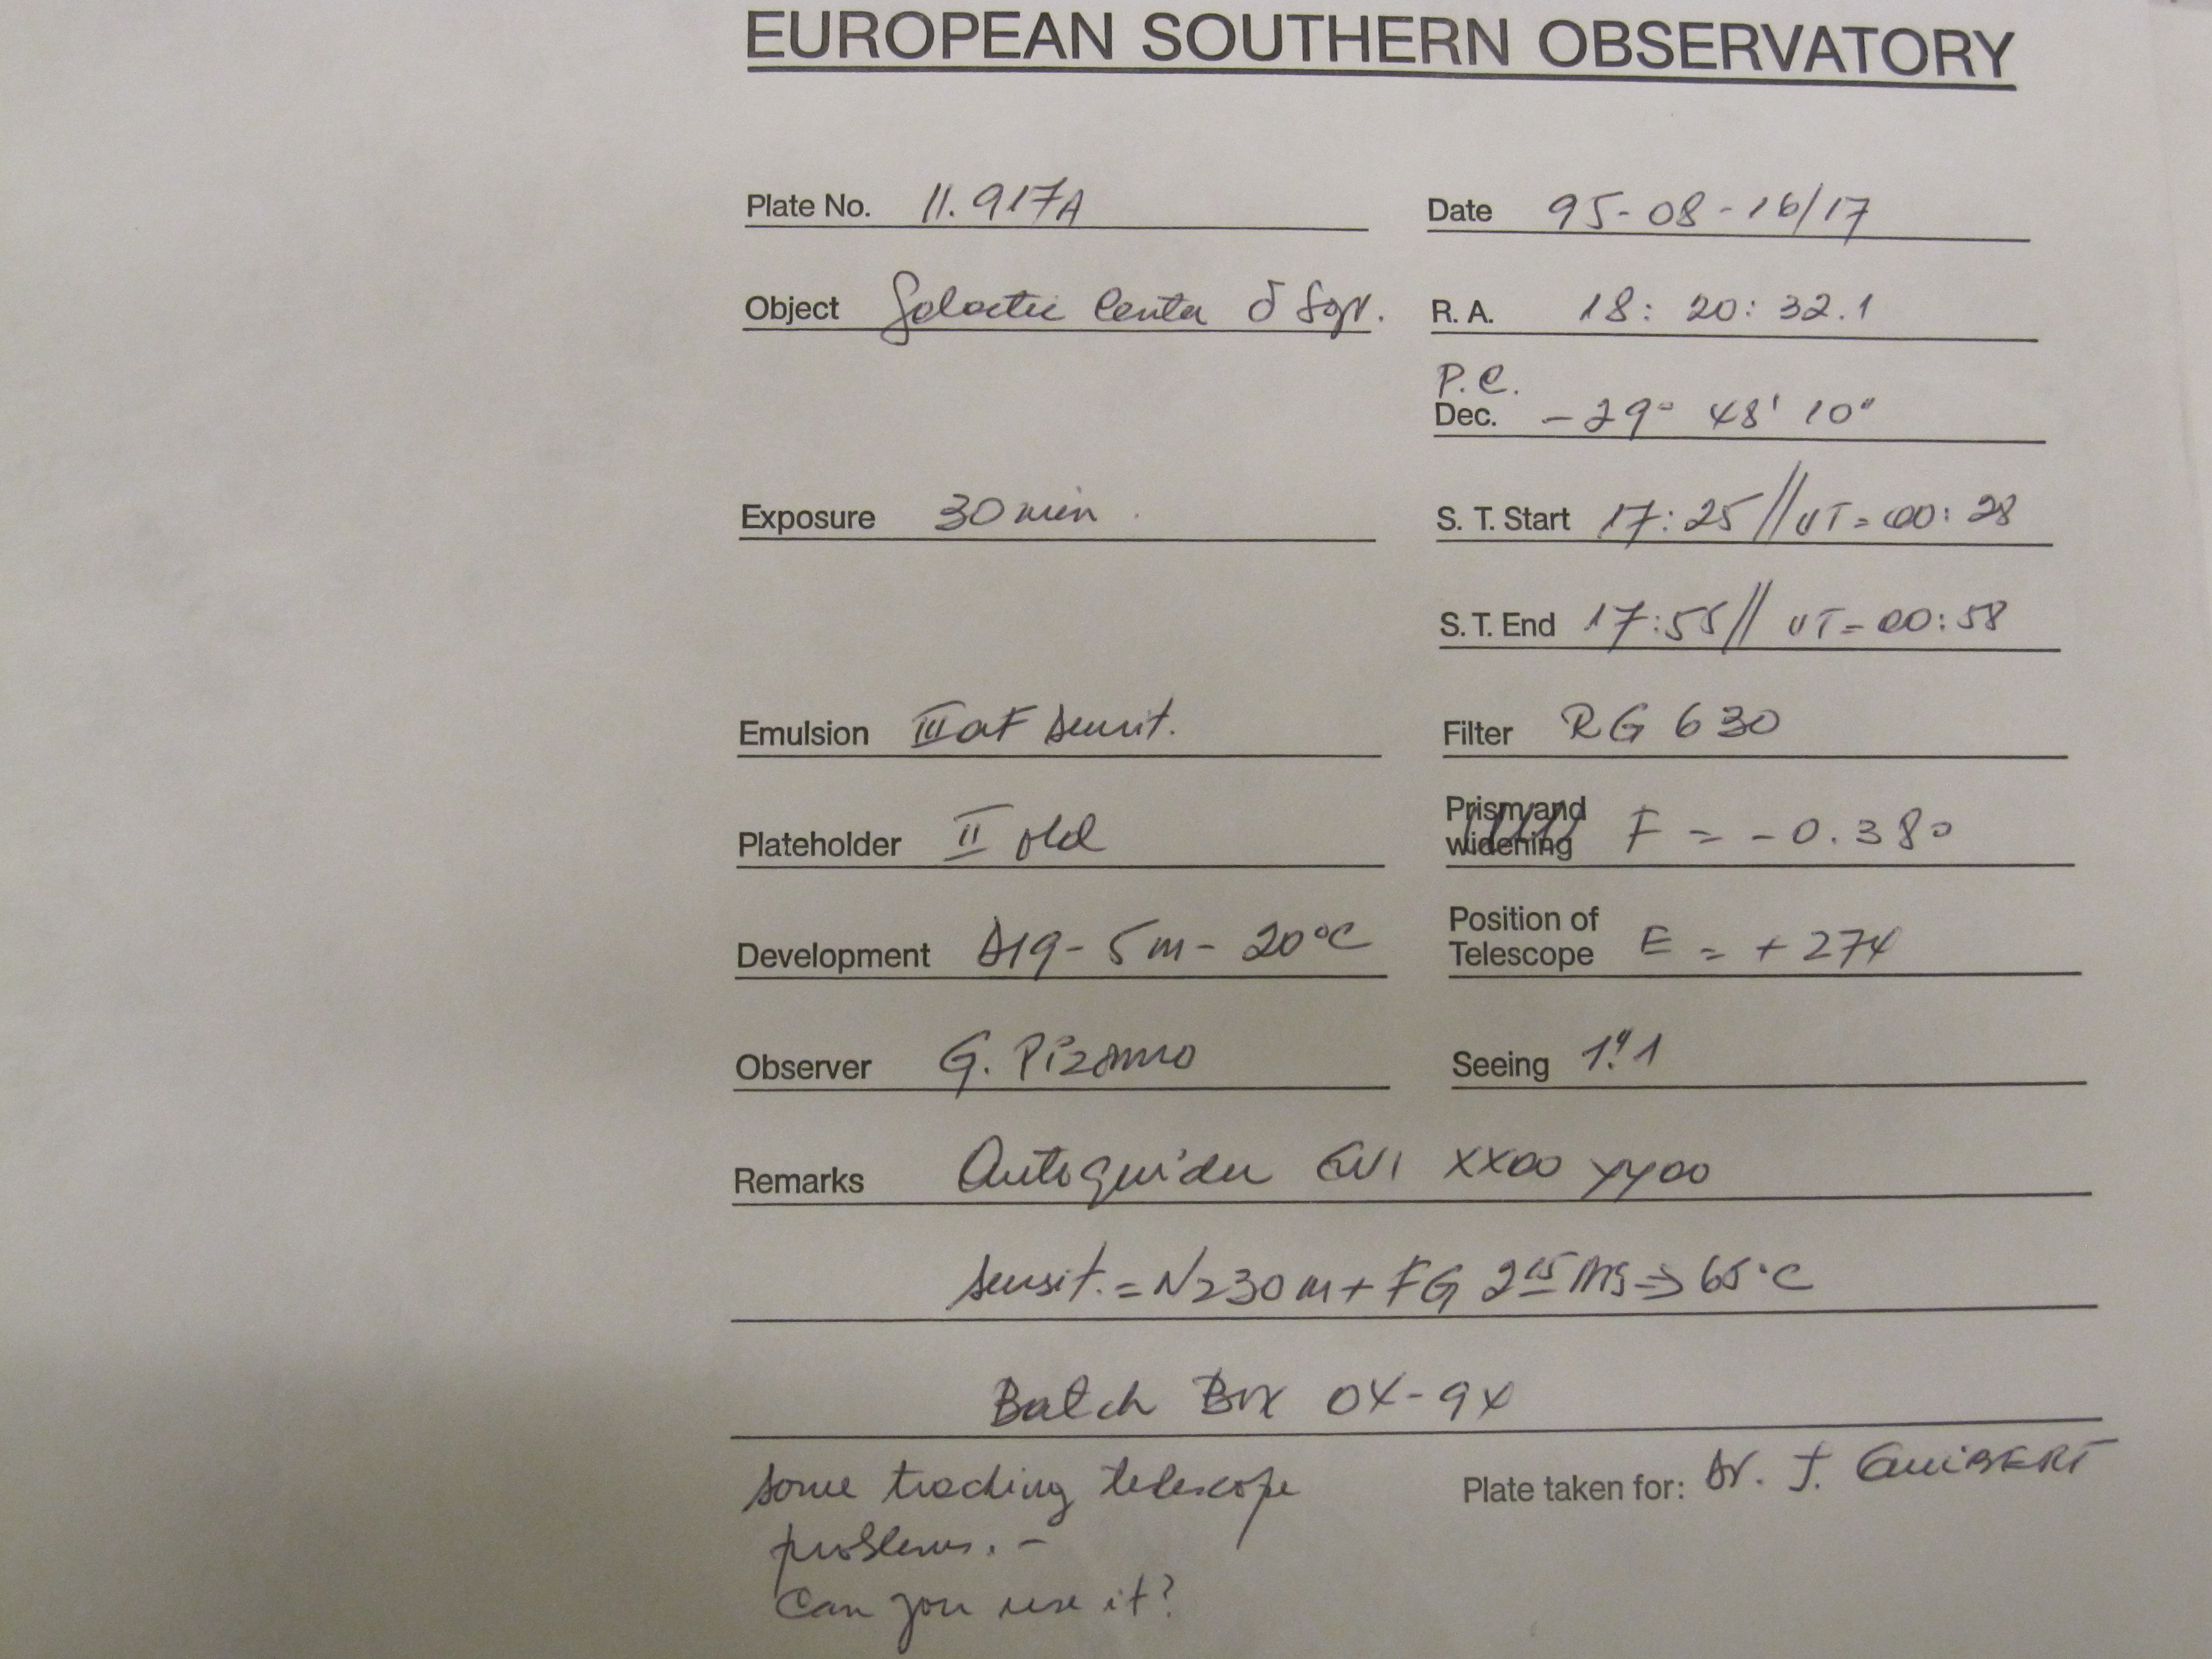 EUROPEAN SOUTHERN OBSERVATORY
Plate No. 11.917A Date 95-08-16/17
Object Galactic Center δ Sgr. R. A. 18: 20: 32.1
P.C.
Dec. -29° 48' 10"
Exposure 30 min. S. T. Start 17:25 // UT=00:28
S. T. End 17:55 // UT=00:58
Emulsion IIIaF sensit. Filter RG 630
Plateholder II old Prism and widening F = -0.380
Development D19- 5m- 20°C Position of Telescope E = +274
Observer G. Pizarro Seeing 1"1
Remarks Autoguider XX00 YY00
sensit. = N2 30m + FG 2 65°C
Batch Box 0X-9X
some tracking telescope Plate taken for: Dr. J. GUIBERT
problems. -
Can you use it?